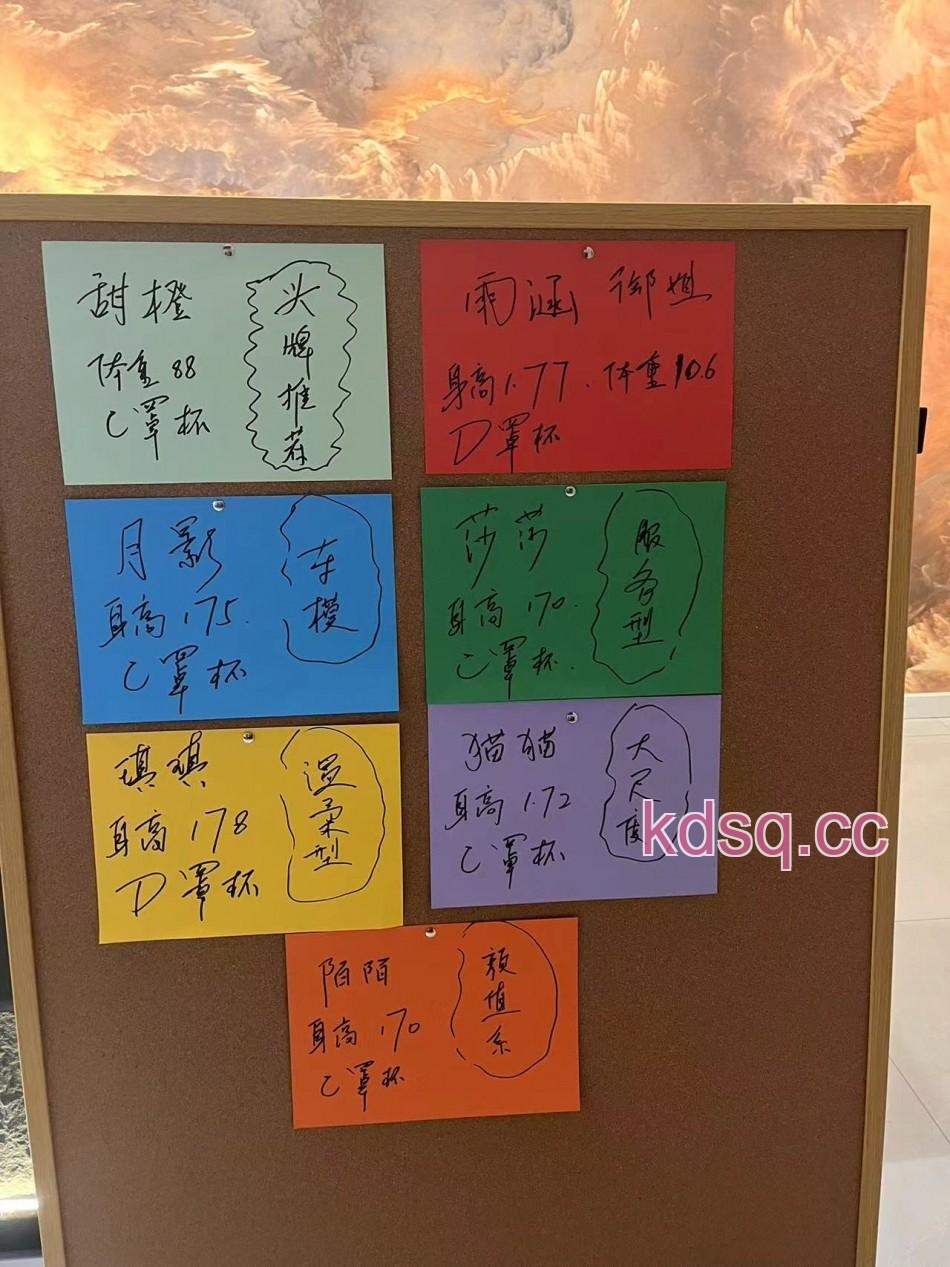 甜橙
体重 88
C罩杯
头牌推荐
雨涵 御姐
身高1.77. 体重106
D罩杯
月影
身高175.
C罩杯
车模
莎莎
身高170.
C罩杯.
服务型
琪琪
身高178
D罩杯
温柔型
猫猫
身高1.72
C罩杯
大尺度
kdsq.cc
陌陌
身高170
C罩杯
颜值系